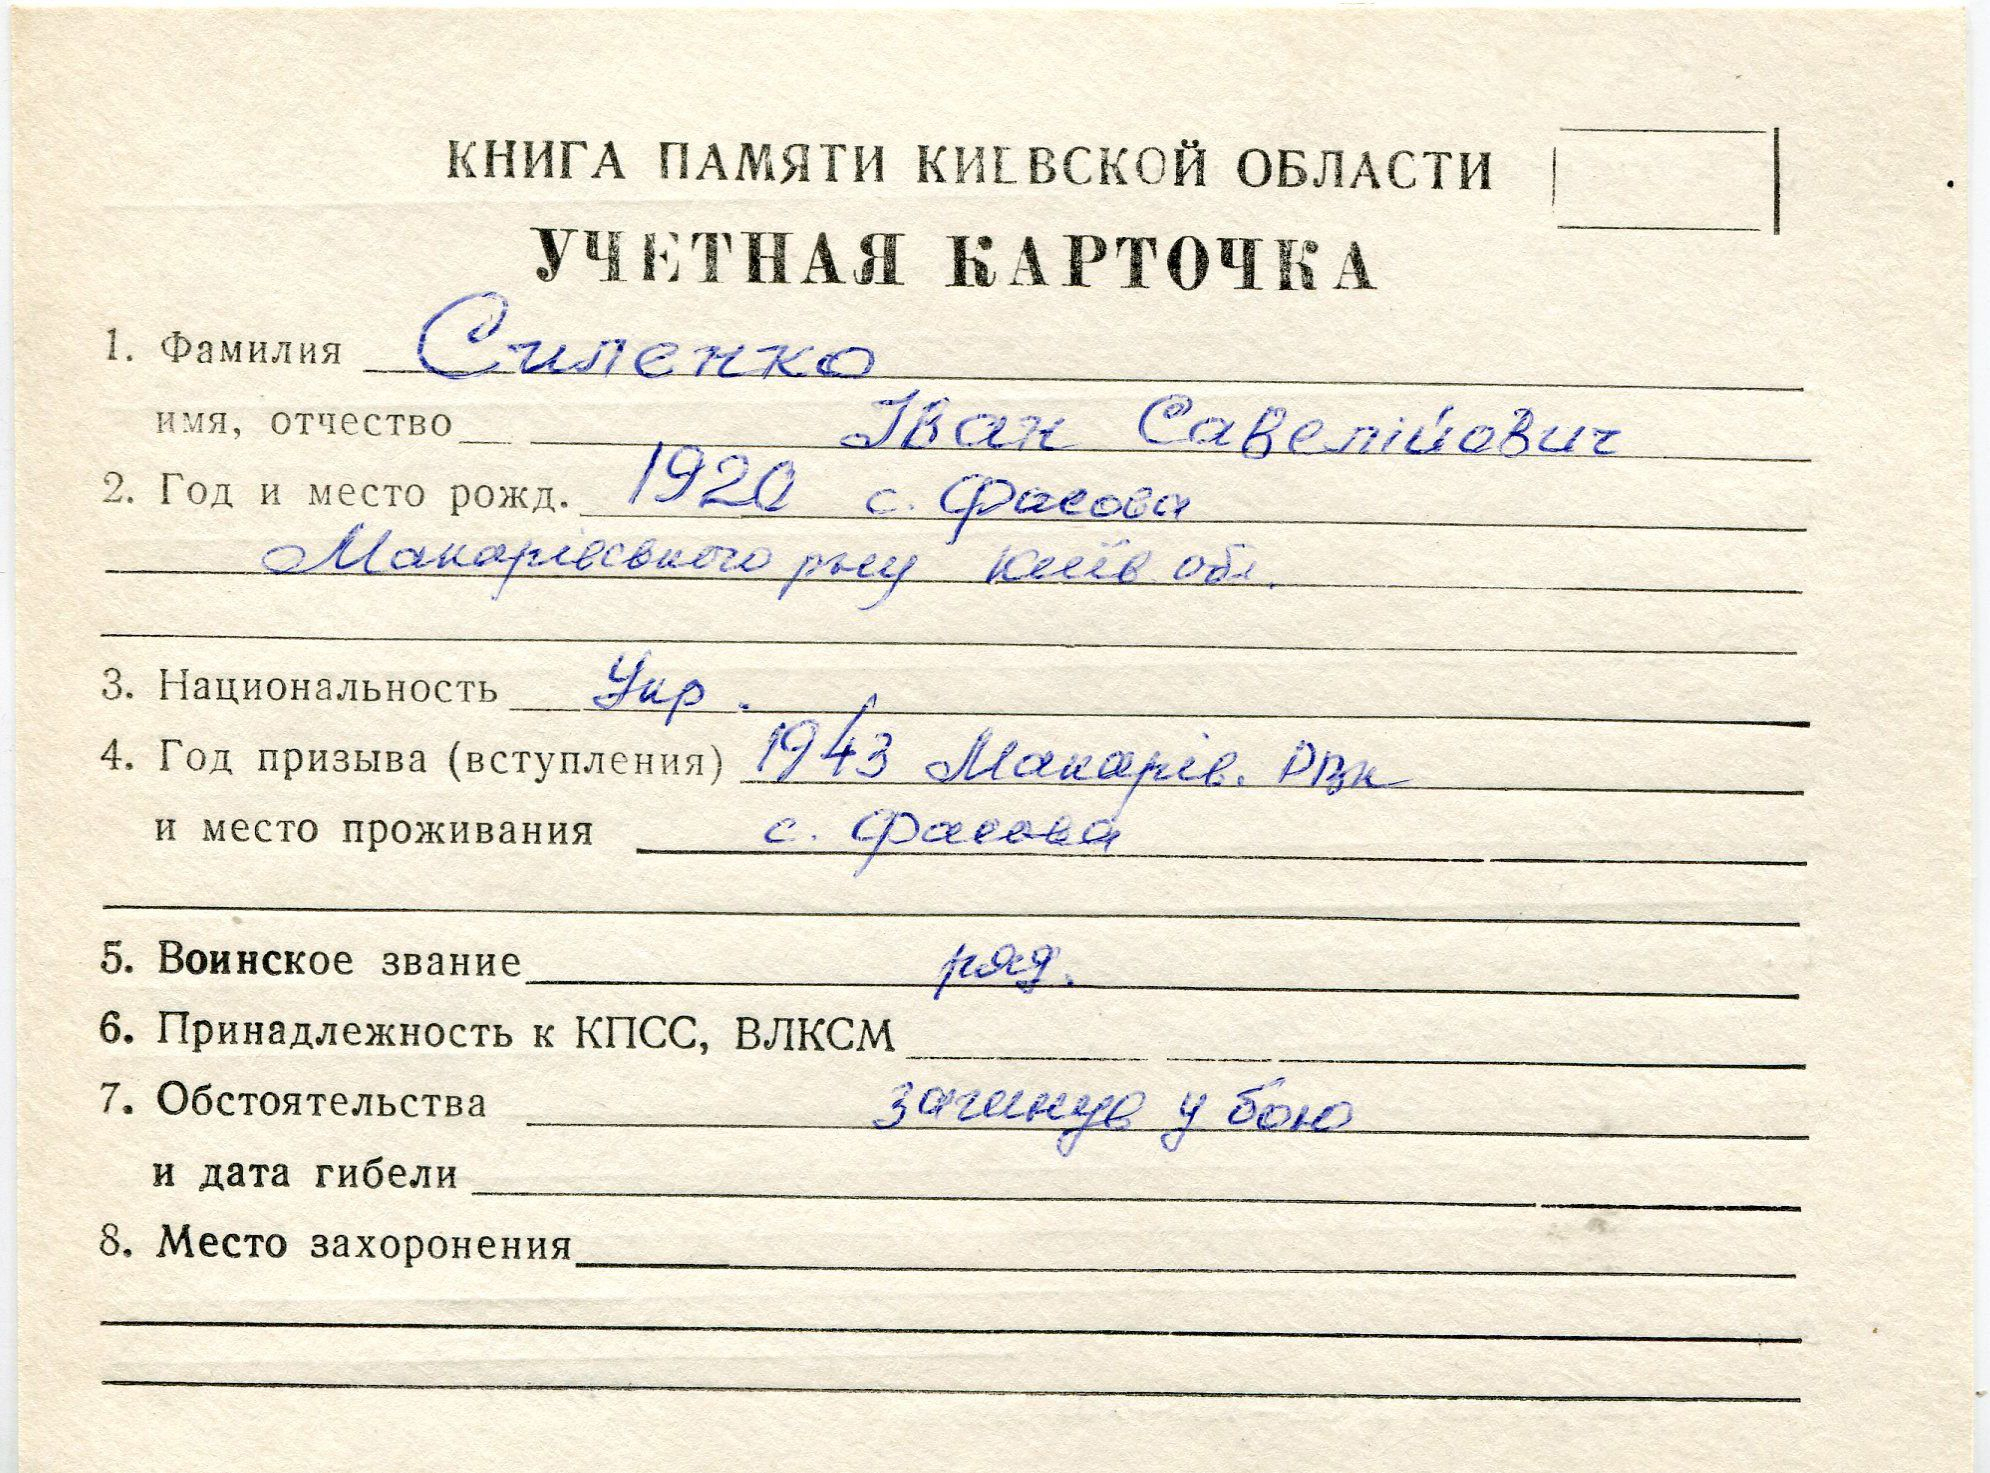 КНИГА ПАМЯТИ КИЕВСКОЙ ОБЛАСТИ
УЧЕТНАЯ КАРТОЧКА
1. Фамилия Силенко
имя, отчество Іван Савелійович
2. Год и место рожд. 1920 с. Фасова
Макарівського р-ну Київ обл.
3. Национальность Укр.
4. Год призыва (вступления) 1943 Макарів. РВК
и место проживания с. Фасова
5. Воинское звание ряд.
6. Принадлежность к КПСС, ВЛКСМ
7. Обстоятельства загинув у бою
и дата гибели
8. Место захоронения